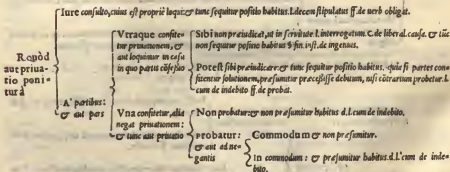 Iure consulto, cuius est propriè loqui: & tunc sequitur positio habitus. l. decem stipulatus ff. de uerb. obligat.
Vtraque confitetur priuationem, & aut loquimur in casu in quo partis cōfessio
Sibi non præiudicat, ut in seruitute l. interrogatum C. de liberal. causa. & tūc non sequitur positio habitus § fin. inst. de ingenuis.
Potest sibi præiudicare: & tunc sequitur positio habitus. quia si partes confitentur solutionem, præsumitur præcessisse debitum, nisi cōtrarium probetur. l. cum de indebito ff. de probat.
Respōd aut priuatio ponitur à
A' partibus: & aut pars
Vna confitetur, alia negat priuationem: & tunc aut priuatio
Non probatur: & non præsumitur habitus d. l. cum de indebito.
probatur: & aut ad negantis
Commodum & non præsumitur.
In commodum: & præsumitur habitus. d. l. cum de indebito.